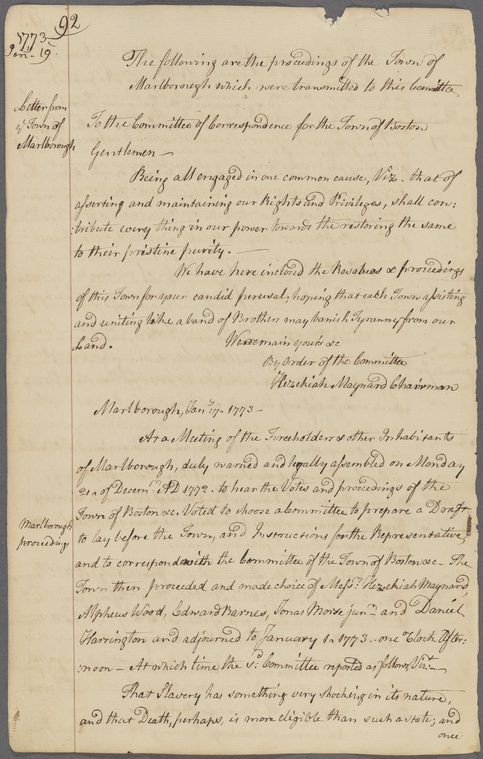 92
1773
Jan- 19.
The following are the proceedings of the Town of
Marlborough which were transmitted to this Committee
Letter from
yᵉ Town of
Marlborough
To the Committee of Correspondence for the Town of Boston
Gentlemen —
Being all engaged in one common cause, Viz. that of
asserting and maintaining our Rights and Privileges, shall con:
:tribute every thing in our power towards the restoring the same
to their pristine purity. —
We have here inclosed the Resolves & proceedings
of this Town for your candid perusal; hoping that each Town assisting
and uniting like a band of Brothers may banish Tyranny from our
Land.
We remain yours &c
By Order of the Committee
Hezekiah Maynard Chairman
Marlborough, Janʸ 17. 1773 —
At a Meeting of the Freeholders & other Inhabitants
of Marlborough, duly warned and legally assembled on Monday
21 of Decemʳ AD 1772. to hear the Votes and proceedings of the
Marlborough
proceedings
Town of Boston &c. Voted to choose a Committee to prepare a Draft
to lay before the Town, and Instructions for the Representative,
and to correspond with the Committee of the Town of Boston &c - The
Town then proceeded and made choice of Messʳˢ Hezekiah Maynard,
Alpheus Wood, Edward Barnes, Jonas Morse junʳ and Daniel
Harrington and adjourned to January 1. 1773. one o'Clock After:
:noon — At which time the sᵈ Committee reported as follows, Vizᵗ
That Slavery has something very shocking in its nature,
and that Death, perhaps, is more eligible than such a state; and
once